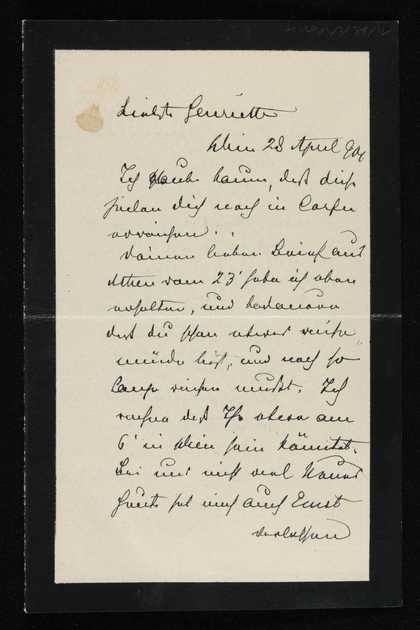 Liebste Henriette
Wien 28 April 904
Ich glaube kaum, daß diese
Zeilen Dich noch in Corfu
erreichen . .
Deinen lieben Brief aus
Athen vom 23' habe ich eben
erhalten, und bedauere
daß du schon etwas reise
müde bist, und noch so
lange reisen mußt. Ich
rechne daß Ihr etwa am
6' in Wien sein könntet.
Bei uns nicht viel Neues
Heute hat uns auch Ernst
verlassen